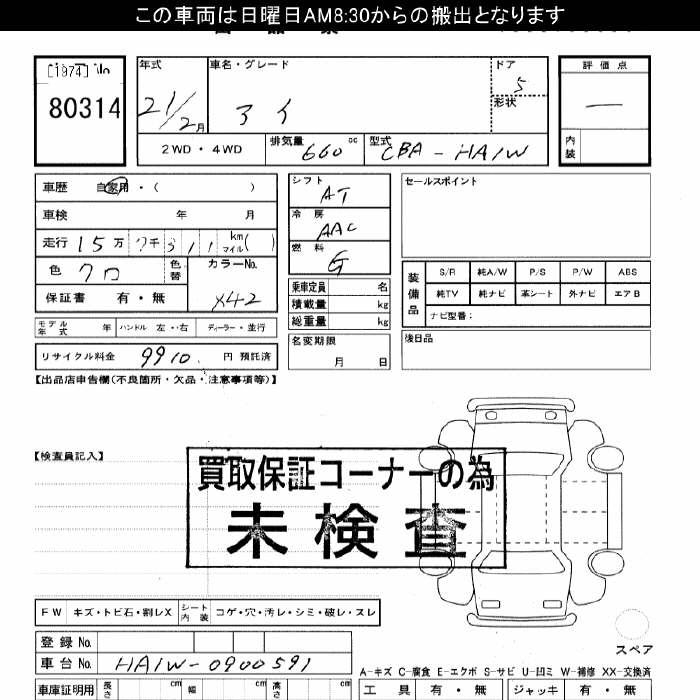 この車両は日曜日AM8:30からの搬出となります
[1974] No
80314
年式 車名・グレード ドア 評価点
21/2月 アイ 5 —
形状
2WD・4WD 排気量 660 cc 型式 CBA-HA1W
内装
車歴 自家用・( )
車検 年 月
走行 15万7千311 km マイル( )
色 クロ 色替 カラーNo.
X42
保証書 有・無
モデル年式 年 ハンドル 左・右 ディーラー・並行
リサイクル料金 9910. 円 預託済
シフト AT
冷房 AAC
燃料 G
乗車定員 名
積載量 kg
総重量 kg
名変期限
月 日
セールスポイント
装備品 S/R 純A/W P/S P/W ABS
純TV 純ナビ 革シート 外ナビ エアB
ナビ型番:
後日品
【出品店申告欄(不良箇所・欠品・注意事項等)】
【検査員記入】
買取保証コーナーの為
未検査
FW キズ・トビ石・割レX シート内装 コゲ・穴・汚レ・シミ・破レ・スレ
スペア
登録 No.
車台 No. HA1W-0900591
A-キズ C-腐食 E-エクボ S-サビ U-凹ミ W-補修 XX-交換済
車庫証明用 長さ cm 幅 cm 高さ cm 工具 有・無 ジャッキ 有・無